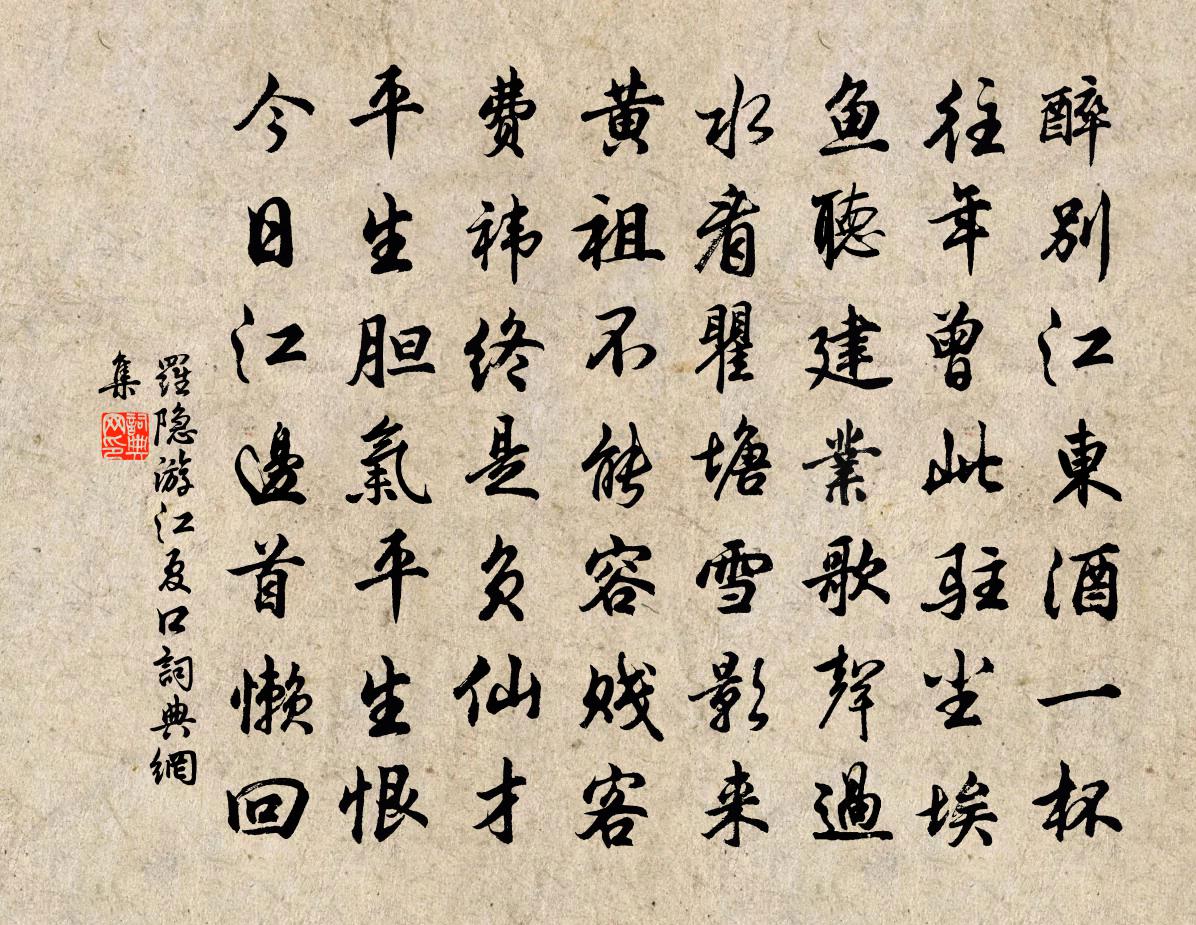 醉别江東酒一杯
往年曾此駐尘埃
鱼聽建業歌聲過
水看瞿塘雪影来
黄祖不能容贱客
费祎终是负仙才
平生胆氣平生恨
今日江邊首懒回
羅隐游江夏口詞典網
集
詞典网印